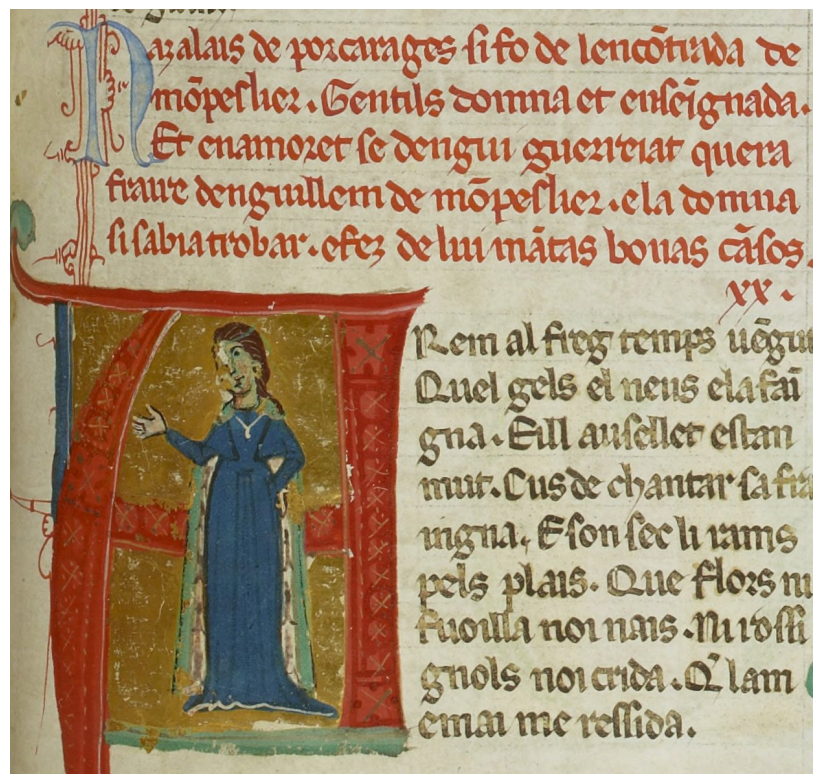 Nazalais de porcarages si fo de lencōtrada de
mōpeslier. Gentils domna et enseignada.
Et enamoret se dengui guerreiat quera
fraire denguillem de mōpeslier. e la domna
si sabia trobar. e fez de lui māntas bonas cāsos.
XX.
ARem al freg temps uēgut
Quel gels el neus e la fai
gna. E ill ausellet estan
mut. Cus de chantar sa fra
uigna. E son sec li rams
pels plais. Que flors ni
fuoilla noi nais. Ni rossi
gnols noi crida. Q̄ lam
e mai me ressida.